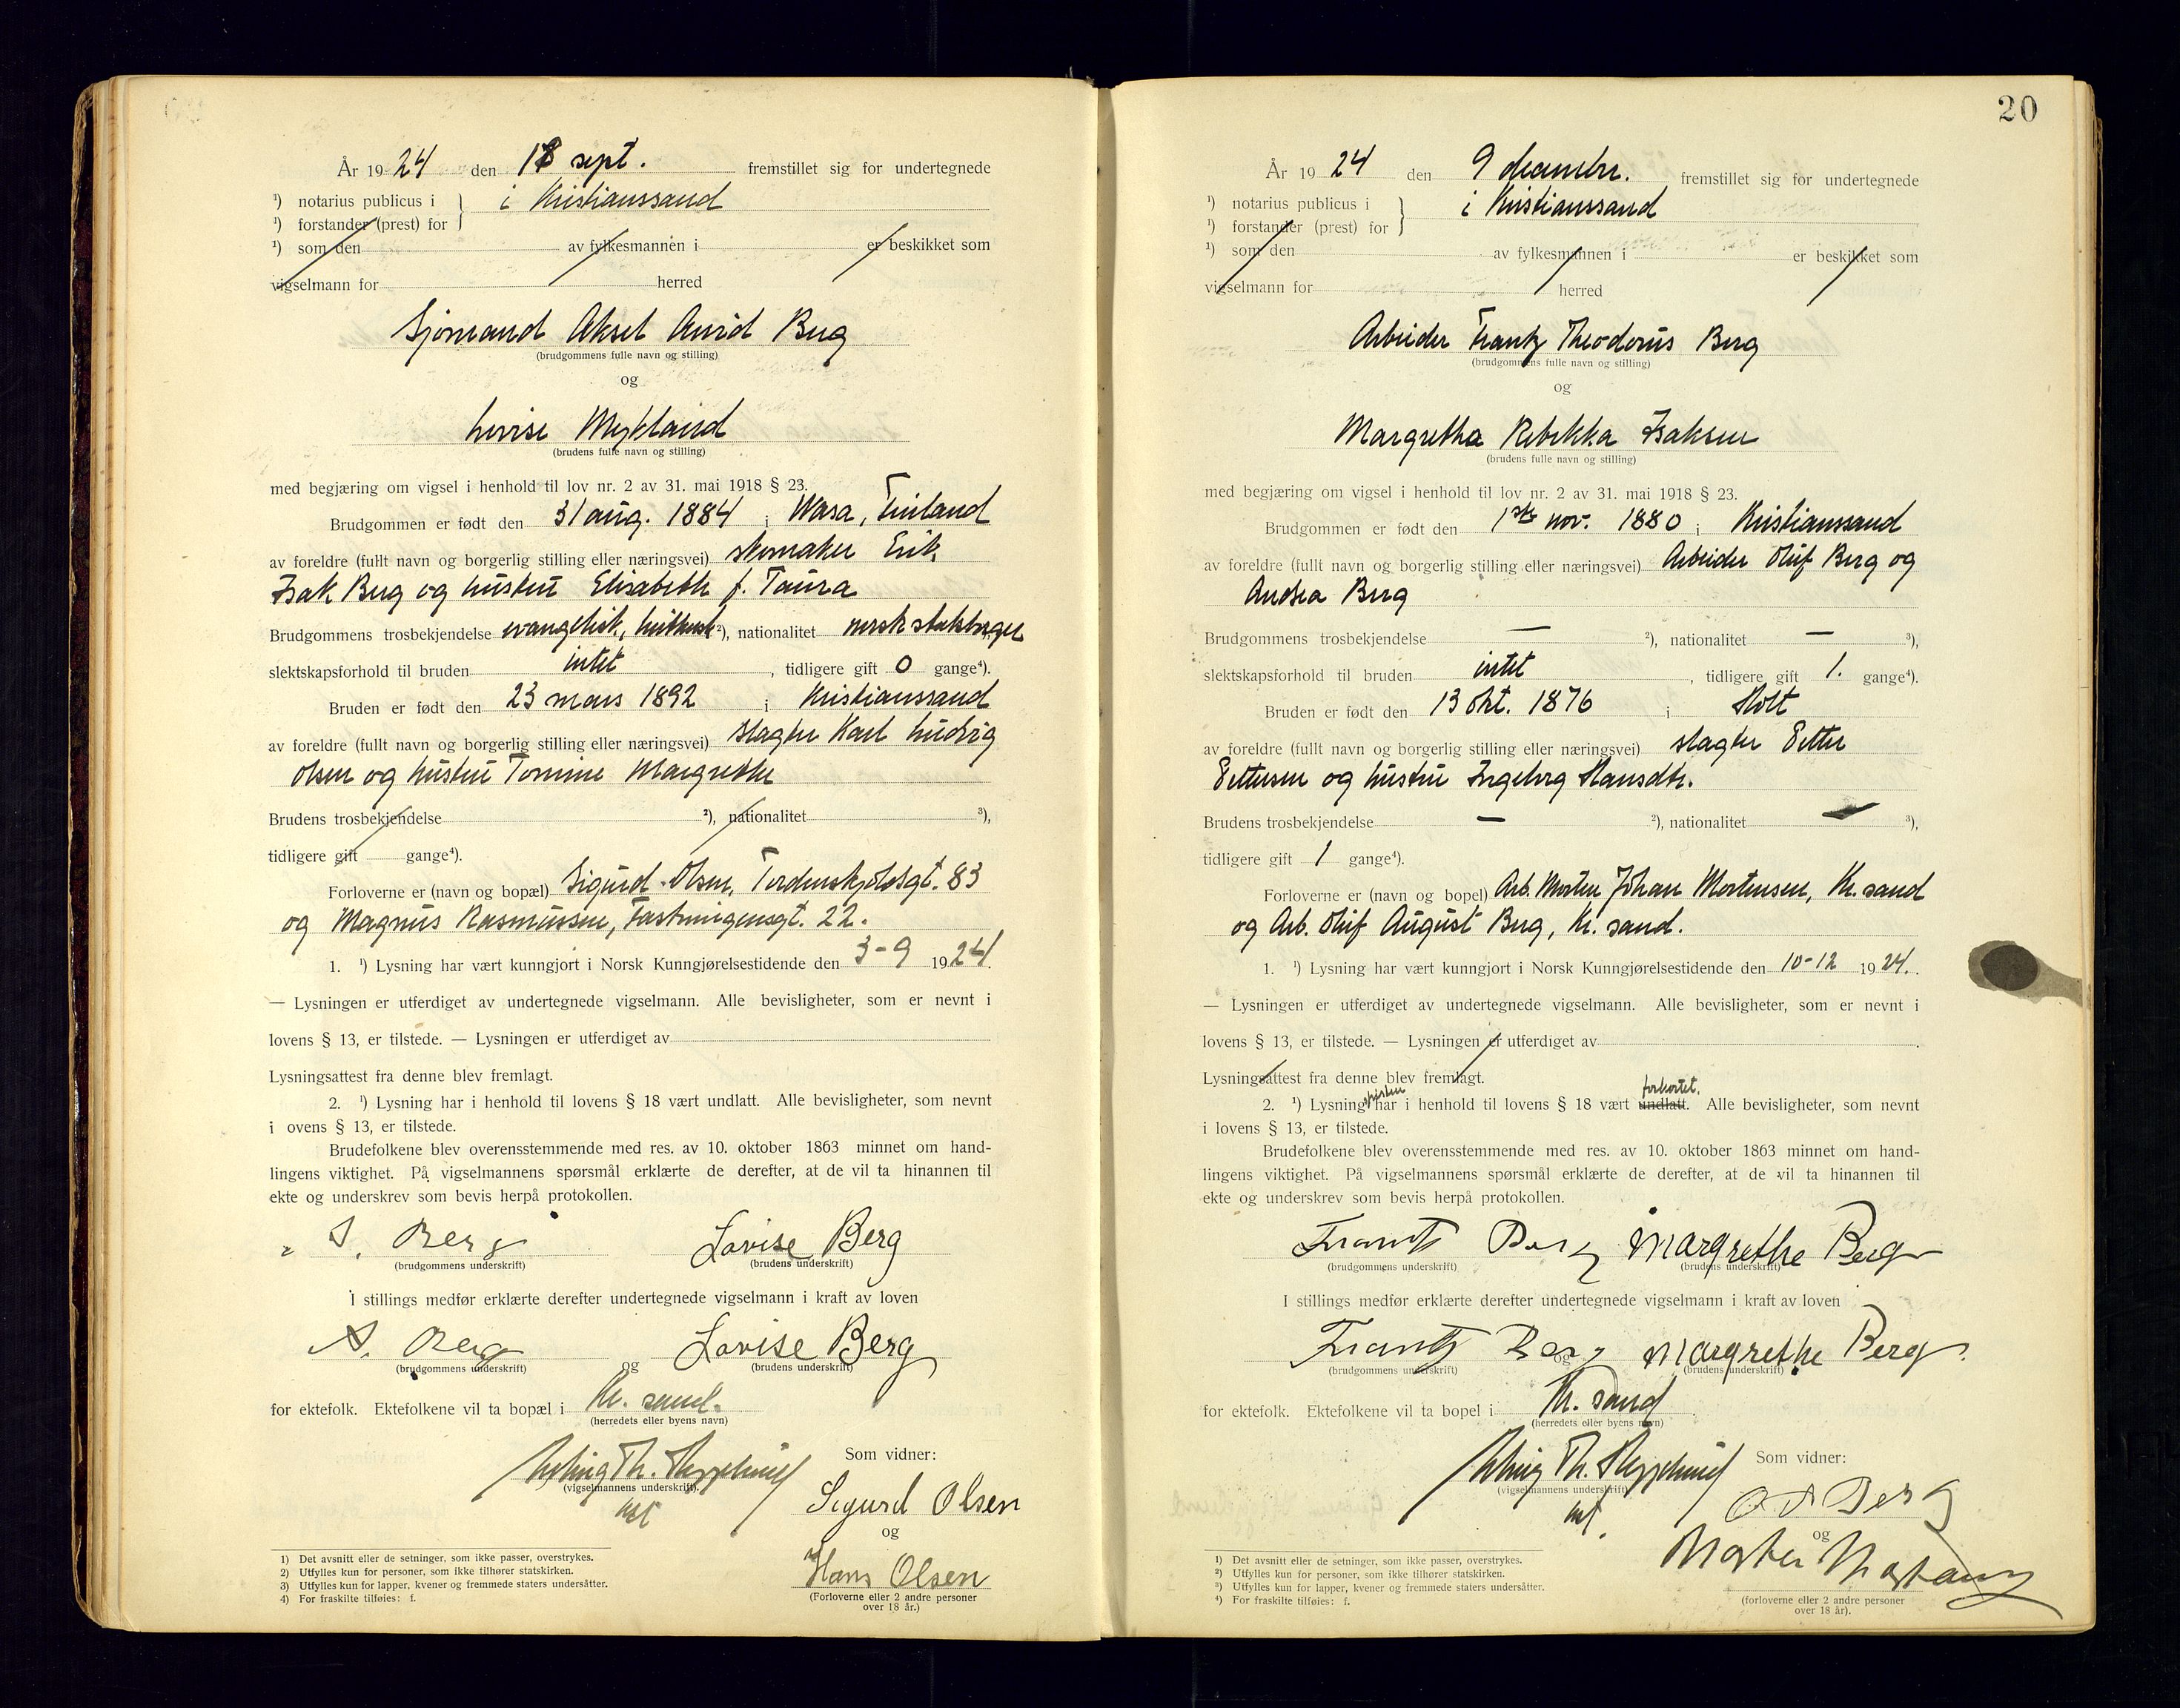 År 1924 den 18 sept. fremstillet sig for undertegnede
¹) notarius publicus i } i Kristianssand
¹) forstander (prest) for
¹) som den av fylkesmannen i er beskikket som
vigselmann for herred
Sjømand Aksel Arvid Berg
(brudgommens fulle navn og stilling)
og
Lovise Mykland
(brudens fulle navn og stilling)
med begjæring om vigsel i henhold til lov nr. 2 av 31. mai 1918 § 23.
Brudgommen er født den 31 aug. 1884 i Wasa, Finland
av foreldre (fullt navn og borgerlig stilling eller næringsvei) skomaker Erik
Isak Berg og hustru Elisabeth f. Taura
Brudgommens trosbekjendelse evangelisk, luthersk ²), nationalitet norsk statsborger
slektskapsforhold til bruden intet, tidligere gift 0 gange⁴).
Bruden er født den 23 mars 1892 i Kristianssand
av foreldre (fullt navn og borgerlig stilling eller næringsvei) slagter Karl Ludvig
Olsen og hustru Tomine Margrethe
Brudens trosbekjendelse ²), nationalitet ³),
tidligere gift gange⁴).
Forloverne er (navn og bopæl) Sigurd Olsen, Tordenskjoldsgt. 83
og Magnus Rasmussen, Fæstningensgt. 22.
1. ¹) Lysning har vært kunngjort i Norsk Kunngjørelsestidende den 3-9 1924.
— Lysningen er utferdiget av undertegnede vigselmann. Alle bevisligheter, som er nevnt i
lovens § 13, er tilstede. — Lysningen er utferdiget av
Lysningsattest fra denne blev fremlagt.
2. ¹) Lysning har i henhold til lovens § 18 vært undlatt. Alle bevisligheter, som nevnt
i ovens § 13, er tilstede.
Brudefolkene blev overensstemmende med res. av 10. oktober 1863 minnet om hand-
lingens viktighet. På vigselmannens spørsmål erklærte de derefter, at de vil ta hinannen til
ekte og underskrev som bevis herpå protokollen.
A. Berg Lovise Berg
(brudgommens underskrift) (brudens underskrift)
I stillings medfør erklærte derefter undertegnede vigselmann i kraft av loven
A. Berg og Lovise Berg
(brudgommens underskrift) (brudens underskrift)
for ektefolk. Ektefolkene vil ta bopæl i Kr. sand.
(herredets eller byens navn)
Som vidner:
(vigselmannens underskrift)
Sigurd Olsen
og
Hans Olsen
(Forloverne eller 2 andre personer
over 18 år.)
1) Det avsnitt eller de setninger, som ikke passer, overstrykes.
2) Utfylles kun for personer, som ikke tilhører statskirken.
3) Utfylles kun for lapper, kvener og fremmede staters undersåtter.
4) For fraskilte tilføies: f.
20
År 1924 den 9 december. fremstillet sig for undertegnede
¹) notarius publicus i } i Kristianssand
¹) forstander (prest) for
¹) som den av fylkesmannen i er beskikket som
vigselmann for herred
Arbeider Frantz Theodorus Berg
(brudgommens fulle navn og stilling)
og
Margretha Rebekka Isaksen
(brudens fulle navn og stilling)
med begjæring om vigsel i henhold til lov nr. 2 av 31. mai 1918 § 23.
Brudgommen er født den 1ste nov. 1880 i Kristianssand
av foreldre (fullt navn og borgerlig stilling eller næringsvei) Arbeider Oluf Berg og
Andrea Berg
Brudgommens trosbekjendelse — ²), nationalitet — ³),
slektskapsforhold til bruden intet, tidligere gift 1. gange⁴).
Bruden er født den 13 okt. 1876 i Holt
av foreldre (fullt navn og borgerlig stilling eller næringsvei) slagter Petter
Pettersen og hustru Ingeborg Hansdtr.
Brudens trosbekjendelse — ²), nationalitet — ³),
tidligere gift 1 gange⁴).
Forloverne er (navn og bopel) Arb. Morten Johan Mortensen, Kr. sand
og Arb. Oluf August Berg, Kr. sand.
1. ¹) Lysning har vært kunngjort i Norsk Kunngjørelsestidende den 10-12 1924.
— Lysningen er utferdiget av undertegnede vigselmann. Alle bevisligheter, som er nevnt i
lovens § 13, er tilstede. — Lysningen er utferdiget av
Lysningsattest fra denne blev fremlagt.
2. ¹) Lysningsfristen har i henhold til lovens § 18 vært undlatt. forkortet. Alle bevisligheter, som nevnt
i lovens § 13, er tilstede.
Brudefolkene blev overensstemmende med res. av 10. oktober 1863 minnet om hand-
lingens viktighet. På vigselmannens spørsmål erklærte de derefter, at de vil ta hinannen til
ekte og underskrev som bevis herpå protokollen.
Frantz Berg Margrethe Berg
(brudgommens underskrift) (brudens underskrift)
I stillings medfør erklærte derefter undertegnede vigselmann i kraft av loven
Frantz Berg og Margrethe Berg.
(brudgommens underskrift) (brudens underskrift)
for ektefolk. Ektefolkene vil ta bopel i Kr. sand
(herredets eller byens navn)
Som vidner:
(vigselmannens underskrift)
O A Berg
og
Morten
(forloverne eller 2 andre personer
over 18 år).
¹) Det avsnitt eller de setninger, som ikke passer, overstrykes.
²) Utfylles kun for personer, som ikke tilhører statskirken.
³) Utfylles kun for lapper, kvener og fremmede staters undersåtter.
⁴) For fraskilte tilføies: f.